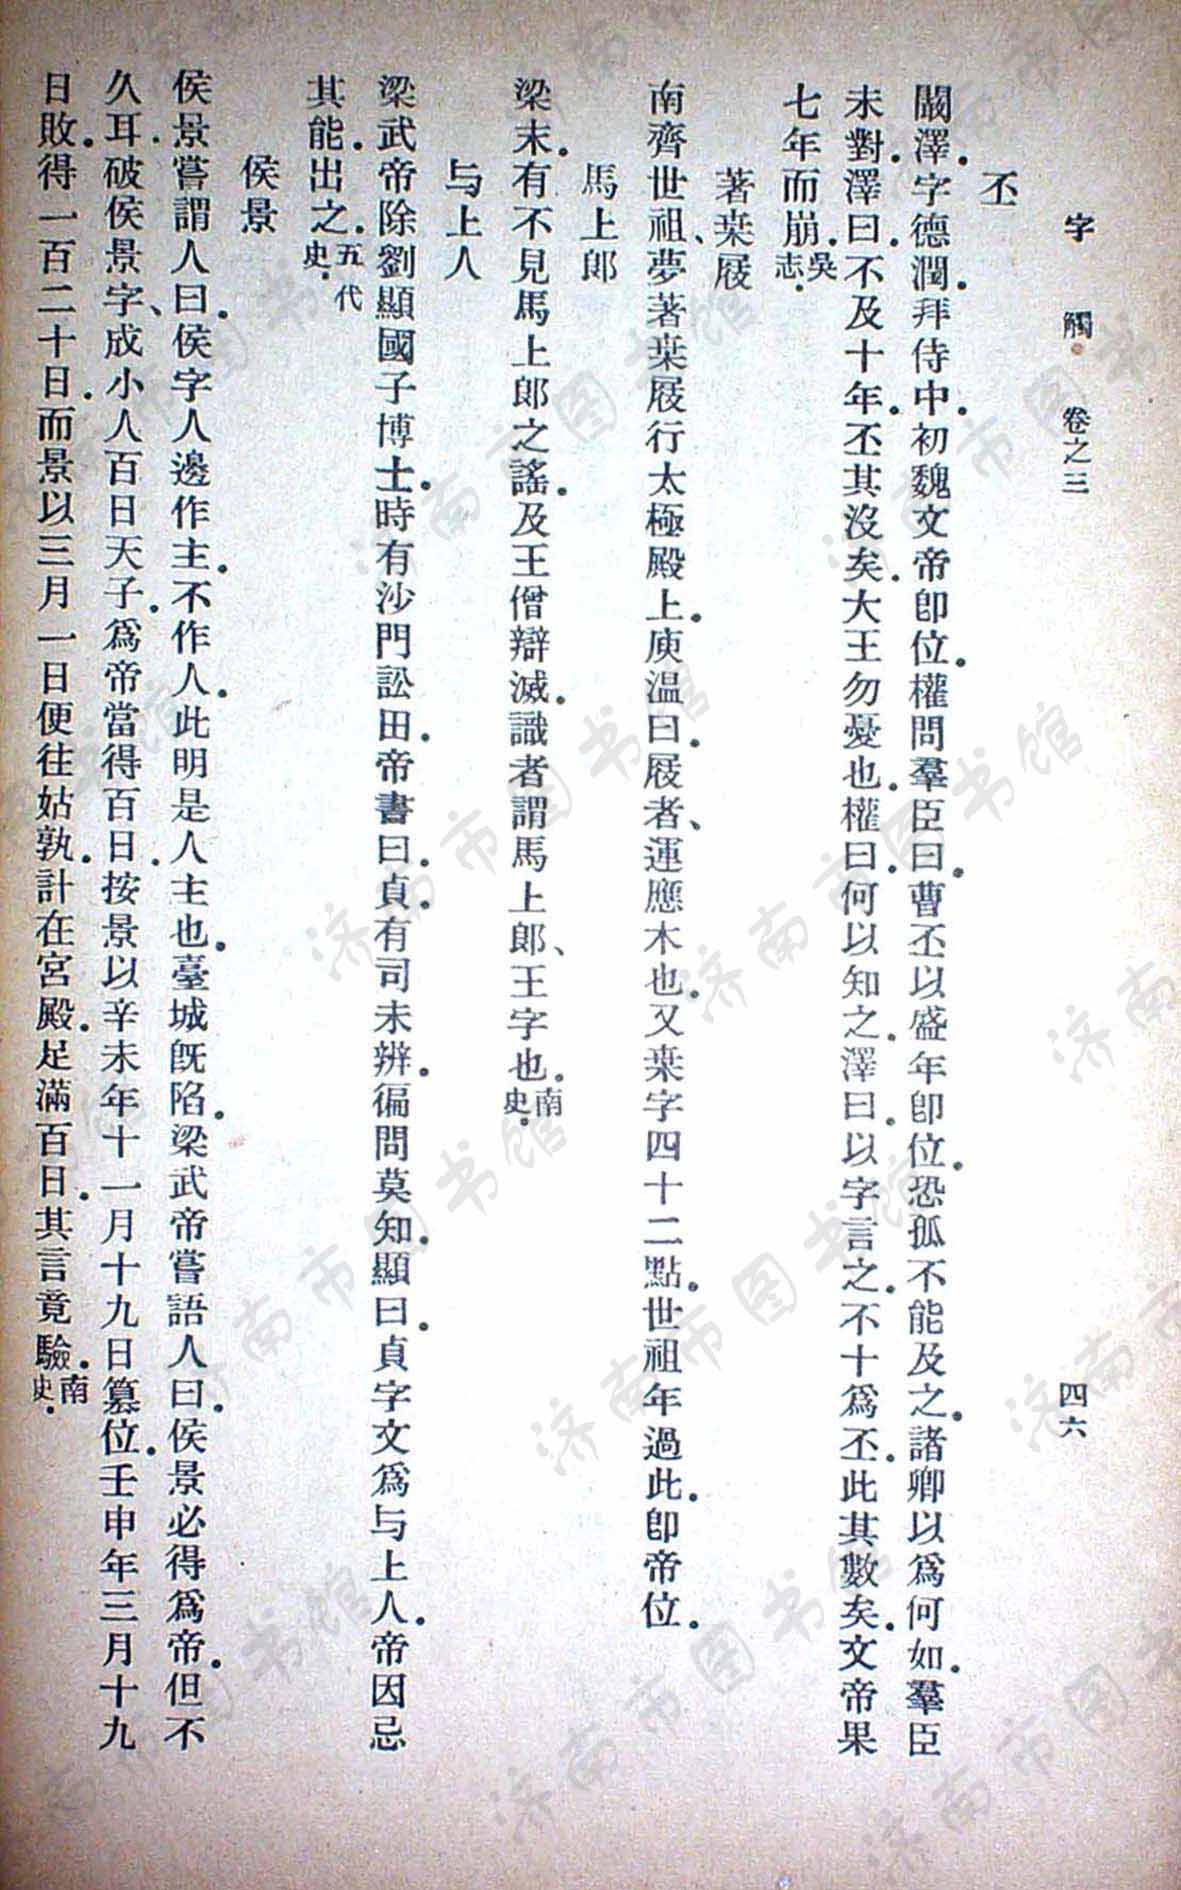 字觸 卷之三 四六
丕
闞澤.字德潤.拜侍中.初魏文帝卽位.權問羣臣曰.曹丕以盛年卽位.恐孤不能及之.諸卿以爲何如.羣臣
未對.澤曰.不及十年.丕其沒矣.大王勿憂也.權曰.何以知之.澤曰.以字言之.不十爲丕.此其數矣.文帝果
七年而崩.吳志.
著桒屐
南齊世祖、夢著桒屐行太極殿上.庾温曰.屐者、運應木也.又桒字四十二點.世祖年過此.卽帝位.
馬上郎
梁末.有不見馬上郎之謠.及王僧辯滅.識者謂馬上郎、王字也.南史.
与上人
梁武帝除劉顯國子博士.時有沙門訟田.帝書曰.貞.有司未辨.徧問莫知.顯曰.貞字文爲与上人.帝因忌
其能出之.五代史.
侯景
侯景嘗謂人曰.侯字人邊作主.不作人.此明是人主也.臺城旣陷.梁武帝嘗語人曰.侯景必得爲帝.但不
久耳.破侯景字、成小人百日天子.爲帝當得百日.按景以辛未年十一月十九日篡位.壬申年三月十九
日敗.得一百二十日.而景以三月一日便往姑孰.計在宮殿.足滿百日.其言竟驗.南史.
济南市图书馆